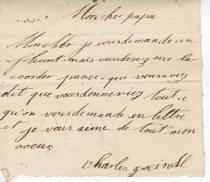 Mon cher papa
Mon cher je vous demande un
fleuret mais vous devez me l'a
ccorder parce que vous avez
dit que vous donneriez tout ce
qu'on vous demande en lettre
et je vous aime de tout mon
coeur
Charles